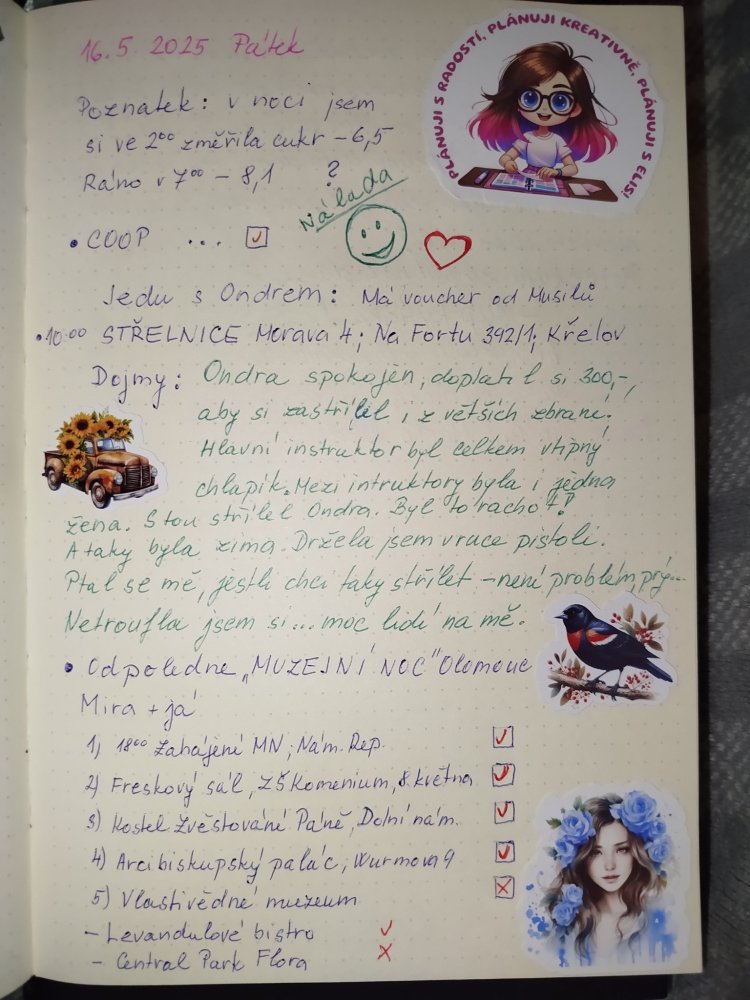 16.5. 2025 Pátek
PLÁNUJI S RADOSTÍ, PLÁNUJI KREATIVNĚ, PLÁNUJI S ELIS!
Poznatek: v noci jsem
si ve 2⁰⁰ změřila cukr - 6,5
Ráno v 7⁰⁰ - 8,1 ?
Nálada
• COOP ... ☑
Jedu s Ondrem: Má voucher od Musilů
• 10:00 STŘELNICE Morava 4; Na Fortu 392/1; Křelov
Dojmy: Ondra spokojen, doplatil si 300,-,
aby si zastřílel i z větších zbraní.
Hlavní instruktor byl celkem vtipný
chlapík. Mezi intruktory byla i jedna
žena. S tou střílel Ondra. Byl to rachot!
A taky byla zima. Držela jsem v ruce pistoli.
Ptal se mě, jestli chci taky střílet - není problém, prý...
Netroufla jsem si... moc lidí na mě.
• Odpoledne „MUZEJNÍ NOC" Olomouc
Mira + já
1) 18⁰⁰ Zahájení MN; Nám. Rep. ☑
2) Freskový sál, ZŠ Komenium, 8. května ☑
3) Kostel Zvěstování Páně, Dolní nám. ☑
4) Arcibiskupský palác; Wurmova 9 ☑
5) Vlastivědné muzeum ☒
- Levandulové bistro ✓
- Central Park Flora ✗